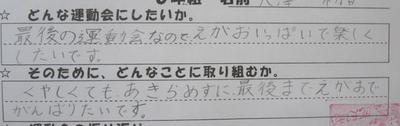 ☆ どんな運動会にしたいか。
最後の運動会なのでえがおいっぱいで楽しく
したいです。
☆ そのために、どんなことに取り組むか。
くやしくても、あきらめずに、最後までえがおで
がんばりたいです。